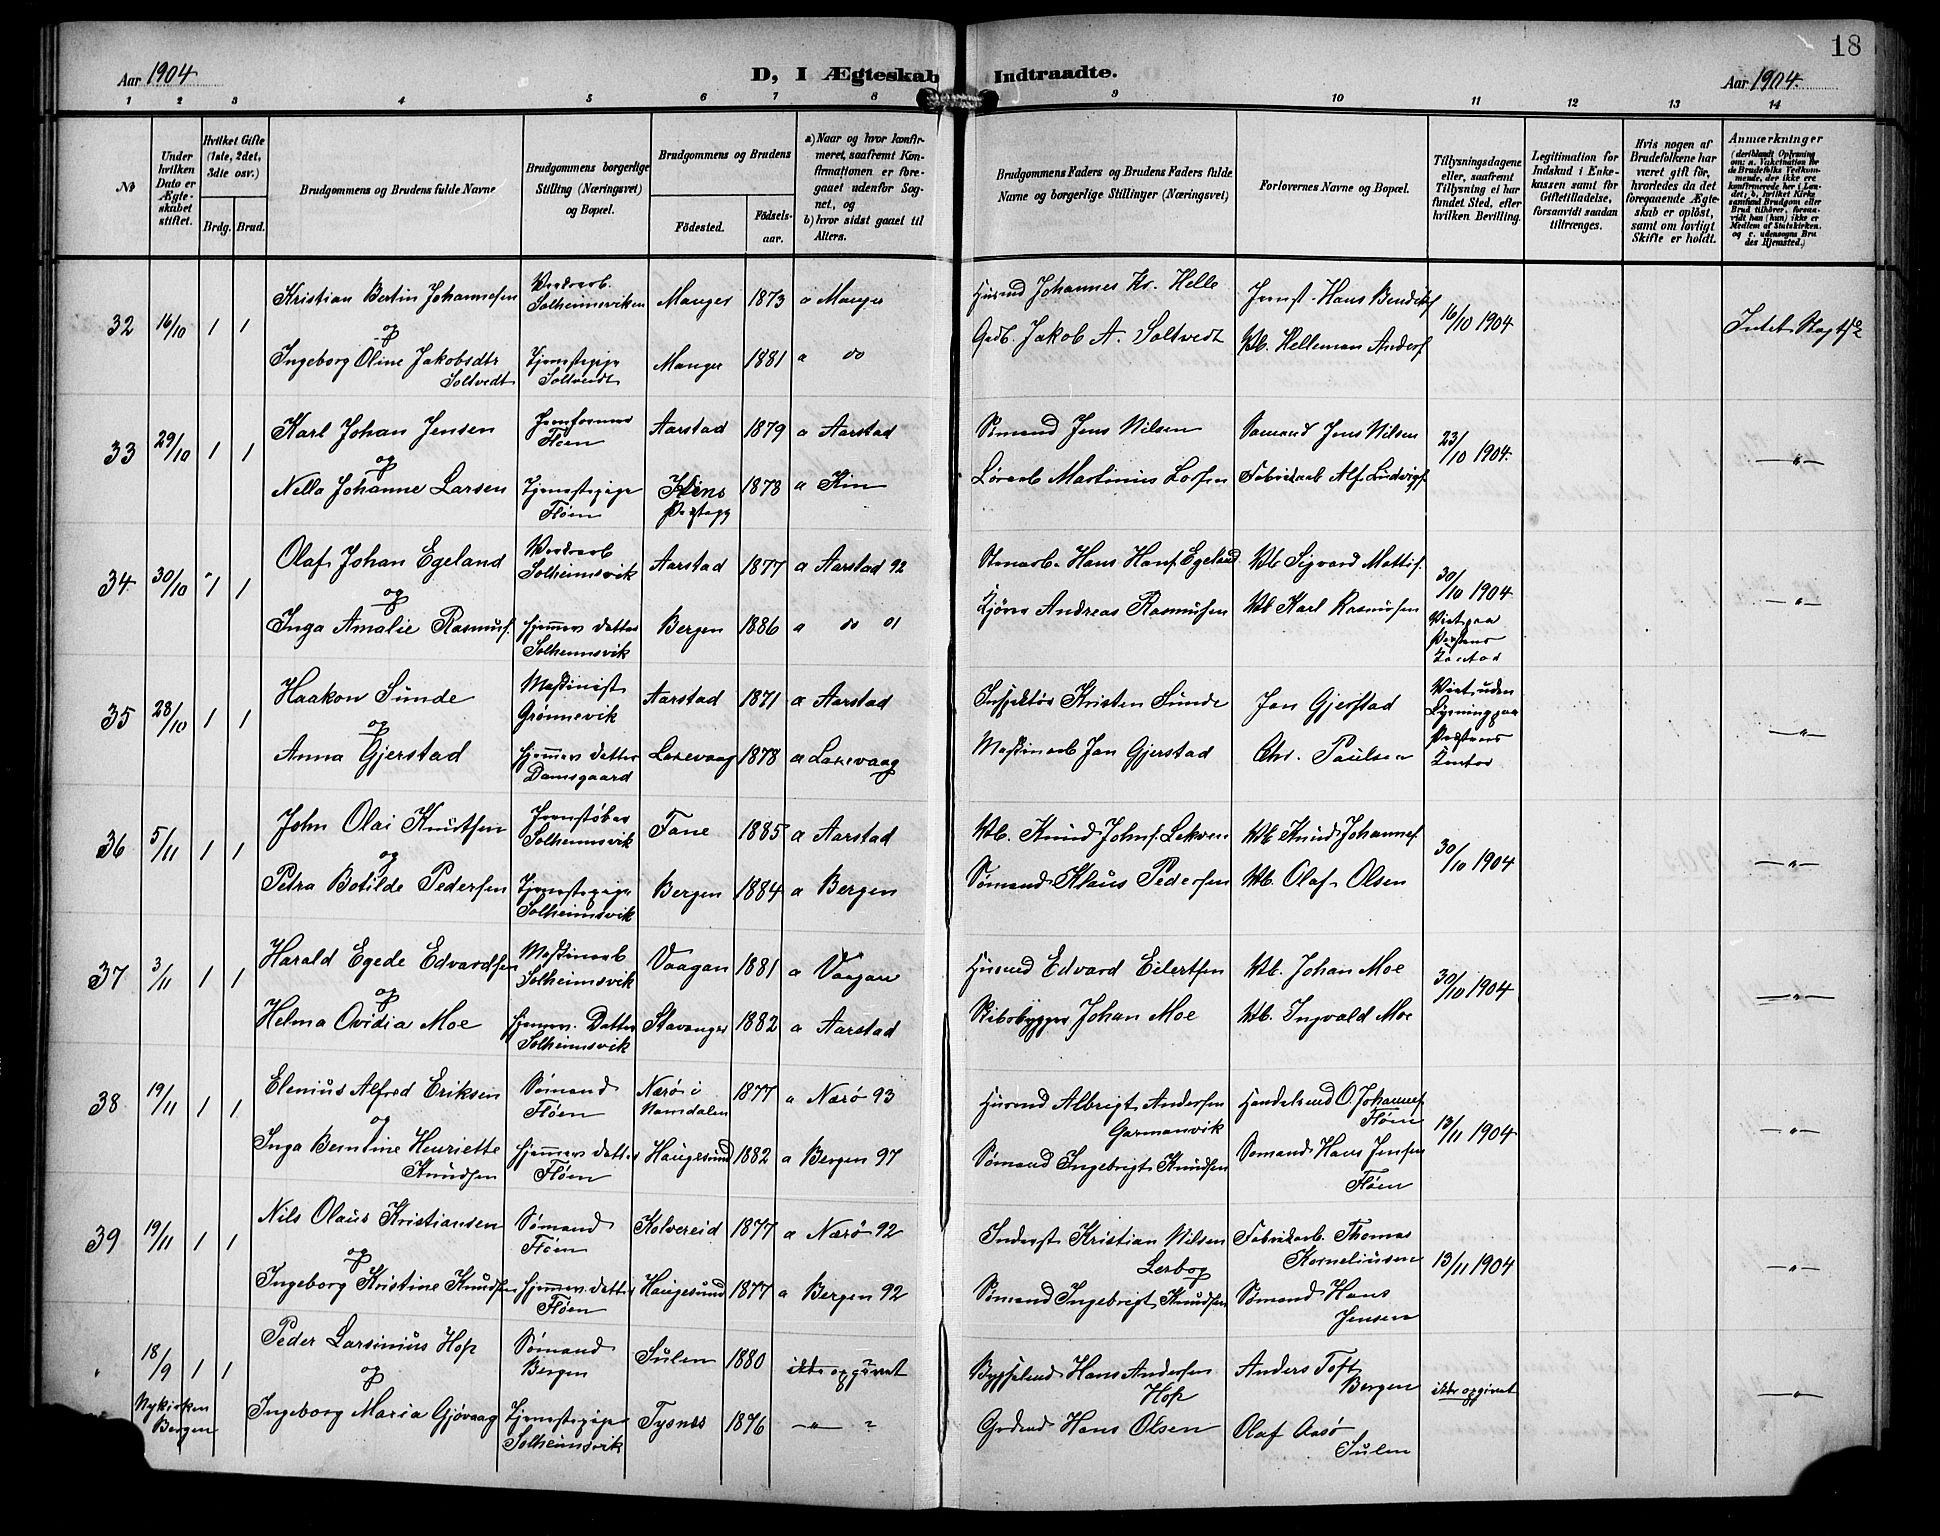 18
Aar 1904
D, I Ægteskab Indtraadte.
Aar 1904.
1 2 3 4 5 6 7 8 9 10 11 12 13 14
№
Under hvilken Dato er Ægteskabet stiftet.
Hvilket Gifte (1ste, 2det, 3die osv.)
Brdg. Brud.
Brudgommens og Brudens fulde Navne
Brudgommens borgerlige Stilling (Næringsvei) og Bopæl.
Brudgommens og Brudens
Fødested.
Fødselsaar.
a) Naar og hvor konfirmeret, saafremt Konfirmationen er foregaaet udenfor Sognet, og
b) hvor sidst gaaet til Alters.
Brudgommens Faders og Brudens Faders fulde Navne og borgerlige Stillinger (Næringsvei)
Forlovernes Navne og Bopæl.
Tillysningsdagene eller, saafremt Tillysning ei har fundet Sted, efter hvilken Bevilling.
Legitimation for Indskud i Enkekassen samt for Giftetilladelse, forsaavidt saadan tiltrænges.
Hvis nogen af Brudefolkene har været gift før, hvorledes da det foregaaende Ægteskab er opløst, samt om lovligt Skifte er holdt.
Anmærkninger
(deriblandt Oplysning om: a. Vakcination for de Brudefolks Vedkommende, der ikke ere konfirmerede her i Landet; b. hvilket Kirkesamfund Brudgom eller Brud tilhører, forsaavidt han (hun) ikke er Medlem af Statskirken, og c. udensogns Brudes Hjemsted.)
32 16/10 1 1 Kristian Bertin Johannesen Solheimsviken Manger 1873 a Manger Husmd Johannes Kr. Helle Hans 16/10 1904 Intet
og
Ingeborg Oline Jakobsdtr Soltvedt Tjenestepige Soltvedt Manger 1881 a do Grdb. Jakob A. Soltvedt Vb. Helleman
33 29/10 1 1 Karl Johan Jensen Jernformer Fløen Aarstad 1879 a Aarstad Sømand Jens Nilsen Sømand Jens Nilsen 23/10 1904. —"—
og
Nella Johanne Larsen Tjenestepige Fløen Kins Præstegj 1878 a Kin Martinus Larsen Fabrikarb Alf Ludvigs.
34 30/10 1 1 Olaf Johan Egeland Solheimsvik Aarstad 1877 a Aarstad 92 Stenarb. Hans Hans. Egeland Vb Sigvard 30/10 1904 —"—
og
Inga Amalie Rasmus. Hjemmev. Datter Solheimsvik Bergen 1886 a do 01 Andreas Rasmussen Vb Karl Rasmussen Viet paa Præstens Kontor
35 28/10 1 1 Haakon Sunde Maskinist Grønnevik Aarstad 1871 a Aarstad Inspektør Kristen Sunde Jan Gjerstad Viet uden Lysning paa Præstens Kontor —"—
og
Anna Gjerstad Hjemmev. Datter Damsgaard Laxevaag 1878 a Laxevaag Maskinarb Jan Gjerstad Chr. Paulsen
36 5/11 1 1 John Olai Knutsen Jernstøber Solheimsvik Fane 1885 a Aarstad Vb. Knud Johns. Lekven Vb Knud Johannes. 30/10 1904 —"—
og
Petra Botilde Pedersen Tjenestepige Solheimsvik Bergen 1884 a Bergen Sømand Klaus Pedersen Vb. Olaf Olsen
37 3/11 1 1 Harald Egede Edvardsen Maskinarb Solheimsvik Vaagan 1881 a Vaagan Husmd Edvard Eilertsen Vb. Johan Moe 30/10 1904 —"—
og
Helma Ovidia Moe Hjemmev. Datter Solheimsvik Stavanger 1882 a Aarstad Skibsbygger Johan Moe Vb. Ingvald Moe
38 19/11 1 1 Elenius Alfred Eriksen Sømand Fløen Nærø i Namdalen 1877 a Nærø 93 Husmd Albrigt Andersen Garmanvik Handelsmd O. Johannes. Fløen 13/11 1904 —"—
og
Inga Berntine Henriette Knudsen Hjemmev. Datter Fløen Haugesund 1882 a Bergen 97 Sømand Ingebrigt Knudsen Sømand Hans Jensen Fløen
39 19/11 1 1 Nils Olaus Kristiansen Sømand Fløen Kolvereid 1877 a Nærø 92 Inderst Kristian Nilsen Lerbog Fabrikarb. Thomas Korneliusen 13/11 1904 —"—
og
Ingeborg Kristine Knudsen Hjemmev. Datter Fløen Haugesund 1877 a Bergen 92 Sømand Ingebrigt Knudsen Sømand Hans Jensen
18/9 1 1 Peder Larsinius Hop Sømand Bergen Sulen 1880 ikke opgivet Bygselmd Hans Andersen Hop Anders Toft Bergen ikke opgivet —"—
Nykirken Bergen
og
Ingeborg Maria Gjøvaag Tjenestepige Solheimsvik Tysnes 1876 —"— Grdmd Hans Olsen Olaf Aasø Sulen